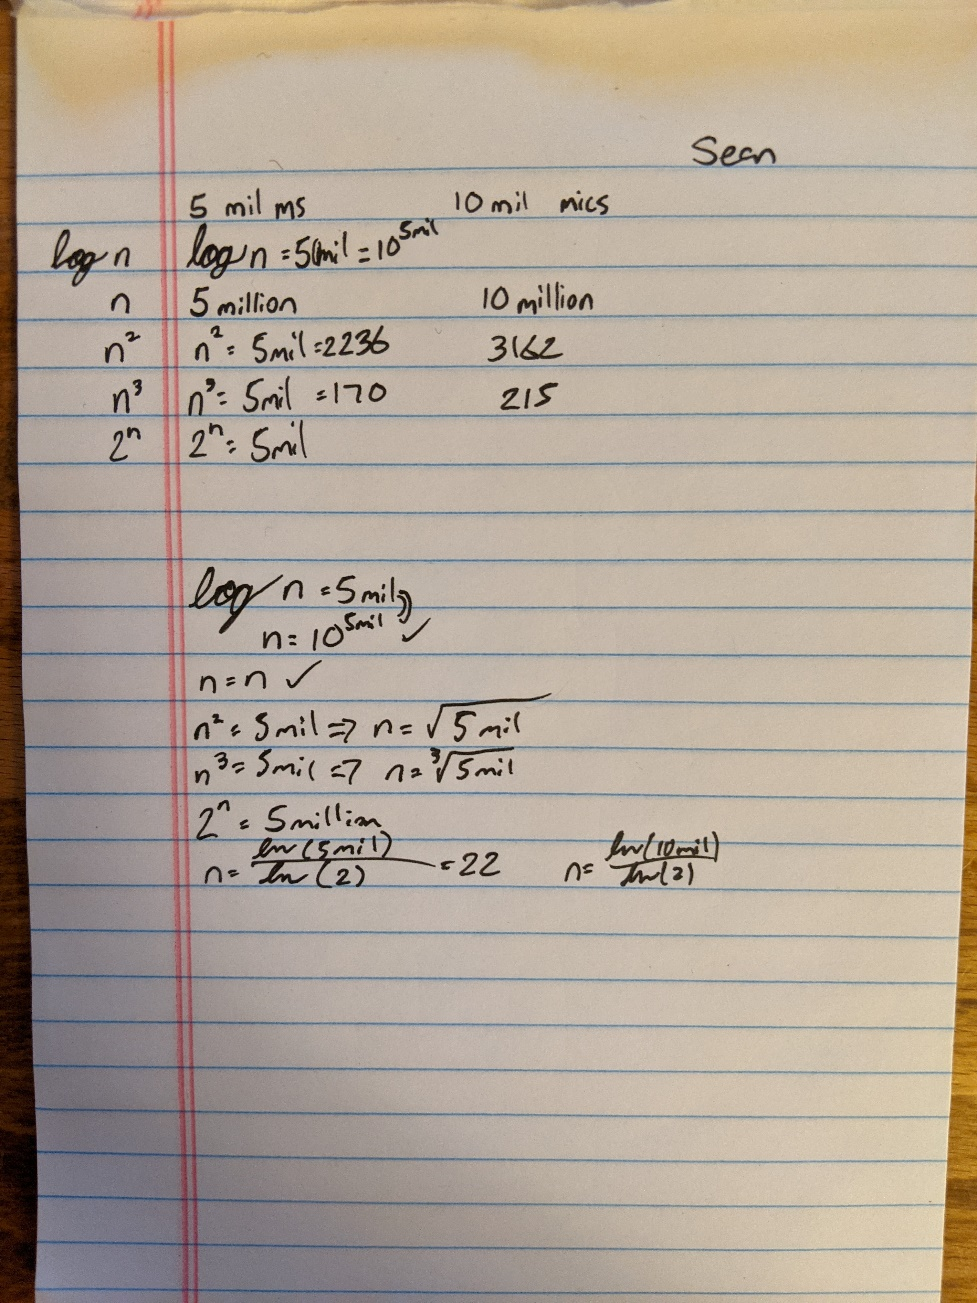 Sean
5 mil ms 10 mil mics
log n log n = 5mil = 10^5mil
n 5 million 10 million
n² n² = 5mil = 2236 3162
n³ n³ = 5mil = 170 215
2ⁿ 2ⁿ = 5mil
log n = 5mil
n = 10^5mil ✓
n = n ✓
n² = 5mil => n = √5 mil
n³ = 5mil => n = ³√5mil
2ⁿ = 5million
n = ln(5mil)/ln(2) = 22 n = ln(10mil)/ln(2)